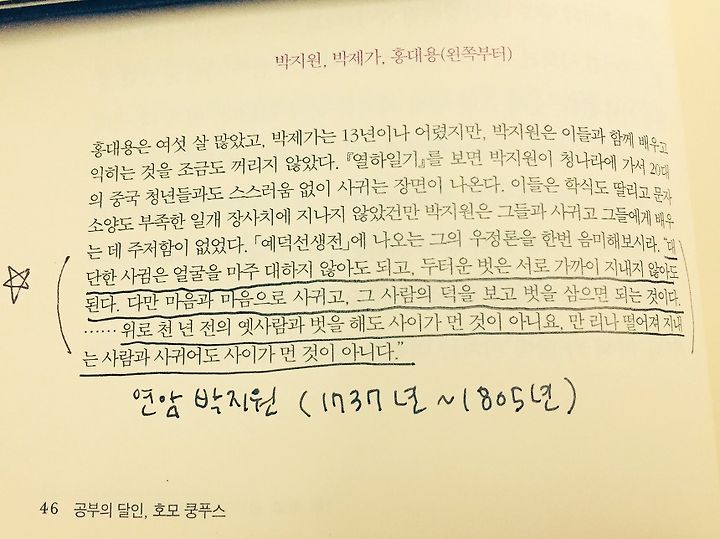 박지원, 박제가, 홍대용(왼쪽부터)
홍대용은 여섯 살 많았고, 박제가는 13년이나 어렸지만, 박지원은 이들과 함께 배우고
익히는 것을 조금도 꺼리지 않았다. 『열하일기』를 보면 박지원이 청나라에 가서 20대
의 중국 청년들과도 스스러움 없이 사귀는 장면이 나온다. 이들은 학식도 딸리고 문자
소양도 부족한 일개 장사치에 지나지 않았건만 박지원은 그들과 사귀고 그들에게 배우
는 데 주저함이 없었다. 「예덕선생전」에 나오는 그의 우정론을 한번 음미해보시라. "대
단한 사귐은 얼굴을 마주 대하지 않아도 되고, 두터운 벗은 서로 가까이 지내지 않아도
된다. 다만 마음과 마음으로 사귀고, 그 사람의 덕을 보고 벗을 삼으면 되는 것이다.
…… 위로 천 년 전의 옛사람과 벗을 해도 사이가 먼 것이 아니요, 만 리나 떨어져 지내
는 사람과 사귀어도 사이가 먼 것이 아니다."
연암 박지원 (1737년 ~1805년)
46 공부의 달인, 호모 쿵푸스